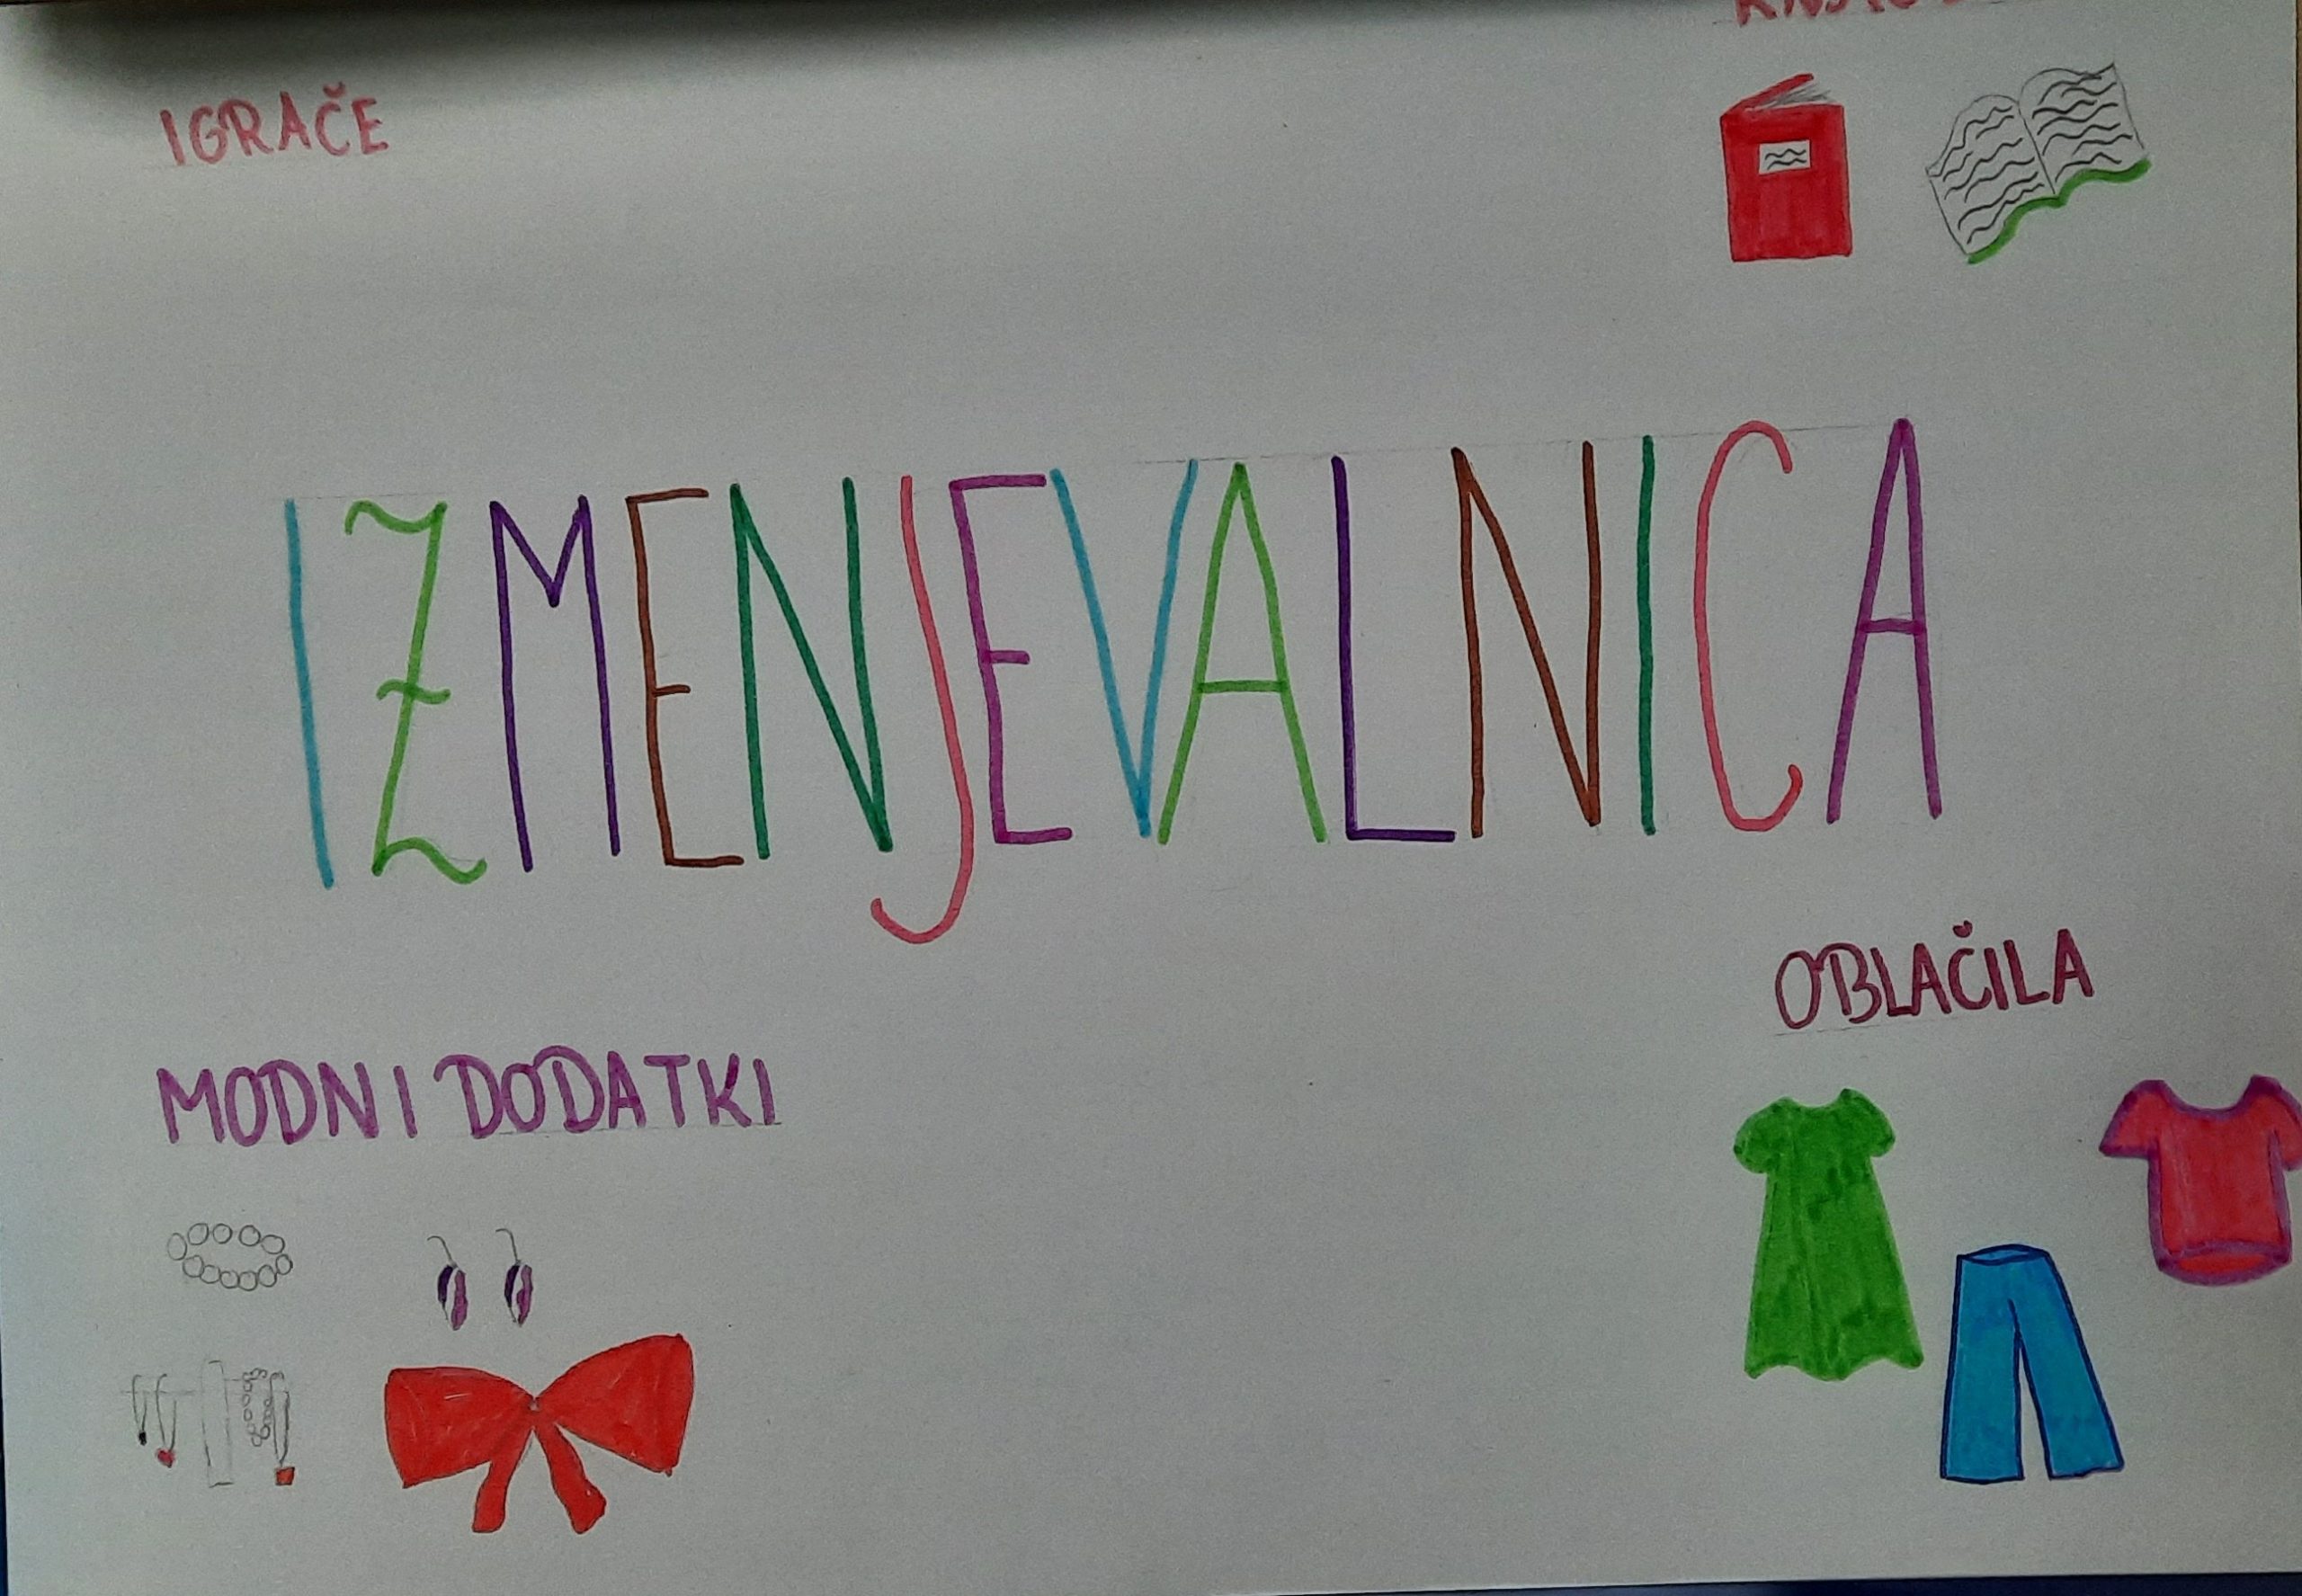 IGRAČE
IZMENJEVALNICA
OBLAČILA
MODNI DODATKI